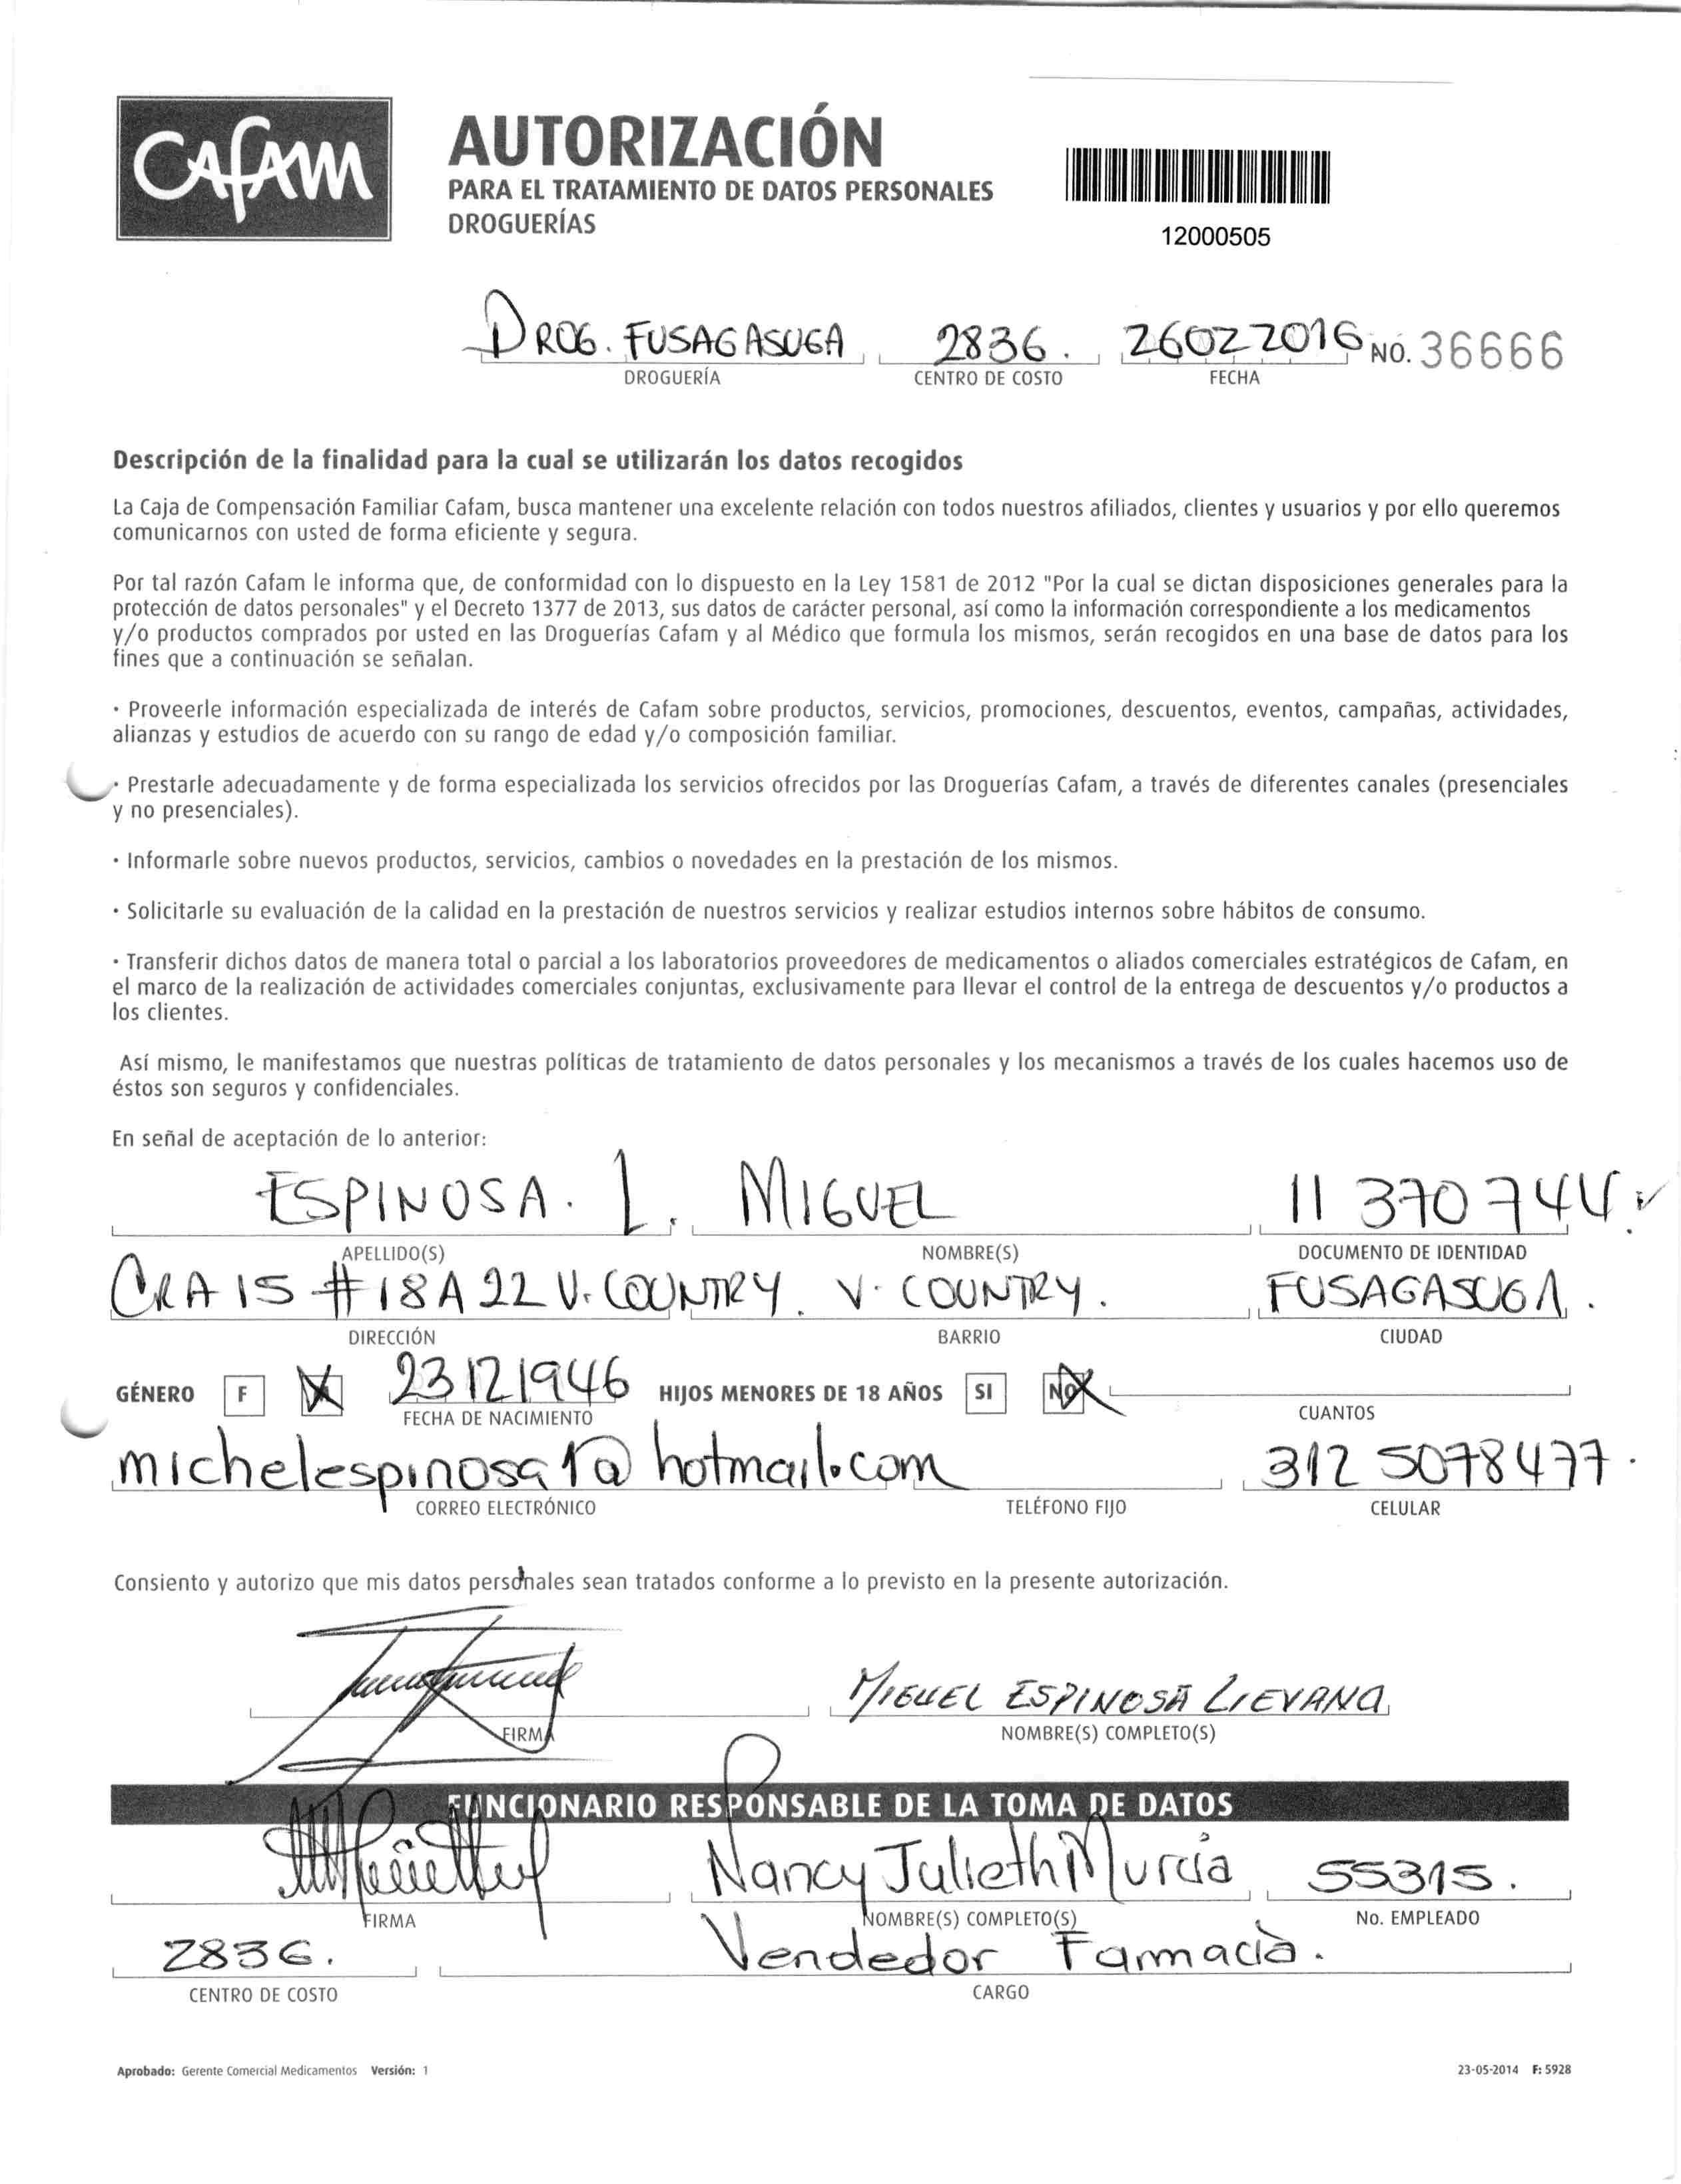 CAFAM
AUTORIZACIÓN
PARA EL TRATAMIENTO DE DATOS PERSONALES
DROGUERÍAS
12000505
DROG. FUSAGASUGA 2836. 26022016 NO. 36666
DROGUERÍA CENTRO DE COSTO FECHA
Descripción de la finalidad para la cual se utilizarán los datos recogidos
La Caja de Compensación Familiar Cafam, busca mantener una excelente relación con todos nuestros afiliados, clientes y usuarios y por ello queremos
comunicarnos con usted de forma eficiente y segura.
Por tal razón Cafam le informa que, de conformidad con lo dispuesto en la Ley 1581 de 2012 "Por la cual se dictan disposiciones generales para la
protección de datos personales" y el Decreto 1377 de 2013, sus datos de carácter personal, así como la información correspondiente a los medicamentos
y/o productos comprados por usted en las Droguerías Cafam y al Médico que formula los mismos, serán recogidos en una base de datos para los
fines que a continuación se señalan.
· Proveerle información especializada de interés de Cafam sobre productos, servicios, promociones, descuentos, eventos, campañas, actividades,
alianzas y estudios de acuerdo con su rango de edad y/o composición familiar.
· Prestarle adecuadamente y de forma especializada los servicios ofrecidos por las Droguerías Cafam, a través de diferentes canales (presenciales
y no presenciales).
· Informarle sobre nuevos productos, servicios, cambios o novedades en la prestación de los mismos.
· Solicitarle su evaluación de la calidad en la prestación de nuestros servicios y realizar estudios internos sobre hábitos de consumo.
· Transferir dichos datos de manera total o parcial a los laboratorios proveedores de medicamentos o aliados comerciales estratégicos de Cafam, en
el marco de la realización de actividades comerciales conjuntas, exclusivamente para llevar el control de la entrega de descuentos y/o productos a
los clientes.
Así mismo, le manifestamos que nuestras políticas de tratamiento de datos personales y los mecanismos a través de los cuales hacemos uso de
éstos son seguros y confidenciales.
En señal de aceptación de lo anterior:
ESPINOSA. L. MIGUEL 11 370 744
APELLIDO(S) NOMBRE(S) DOCUMENTO DE IDENTIDAD
CRA 15 # 18A 22 V. COUNTRY. V. COUNTRY. FUSAGASUGA.
DIRECCIÓN BARRIO CIUDAD
GÉNERO F 23121946 HIJOS MENORES DE 18 AÑOS SI NO
FECHA DE NACIMIENTO CUANTOS
michelespinosa1@hotmail.com 312 5078477.
CORREO ELECTRÓNICO TELÉFONO FIJO CELULAR
Consiento y autorizo que mis datos personales sean tratados conforme a lo previsto en la presente autorización.
MIGUEL ESPINOSA LIEVANA
FIRMA NOMBRE(S) COMPLETO(S)
FUNCIONARIO RESPONSABLE DE LA TOMA DE DATOS
Nancy Julieth Murcia 55315.
FIRMA NOMBRE(S) COMPLETO(S) No. EMPLEADO
2836. Vendedor Farmacia.
CENTRO DE COSTO CARGO
Aprobado: Gerente Comercial Medicamentos Versión: 1 23-05-2014 F: 5928